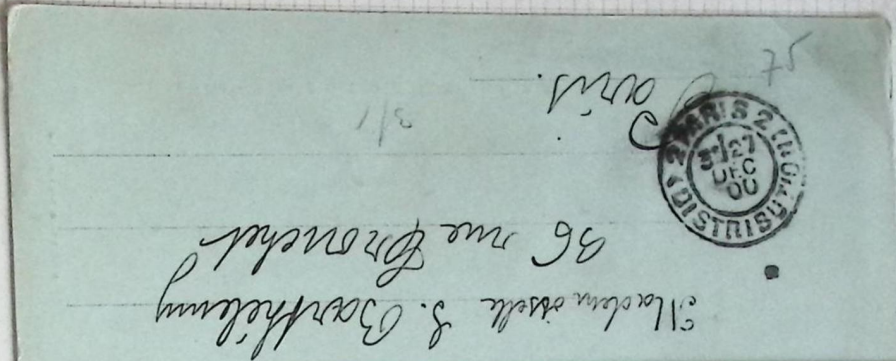 Mademoiselle S. Barthélemy
36 rue Tronchet
Paris.
3/1
75
2 PARIS 2
27
DEC
00
DISTRIBUTION